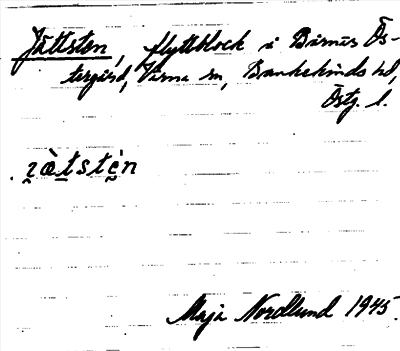 Jättsten, flyttblock i Bärnäs Ös-
tergård, Värna sn, Bankekinds hd,
Östg. l.
ʒæ̀tstèn
Maja Nordlund 1945.